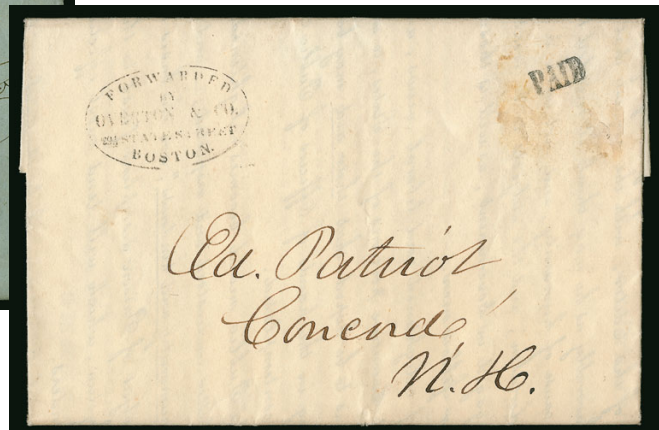 FORWARDED
BY
OVERTON & CO.
STATE STREET
BOSTON.
PAID
Ed. Patriot
Concord,
N. H.